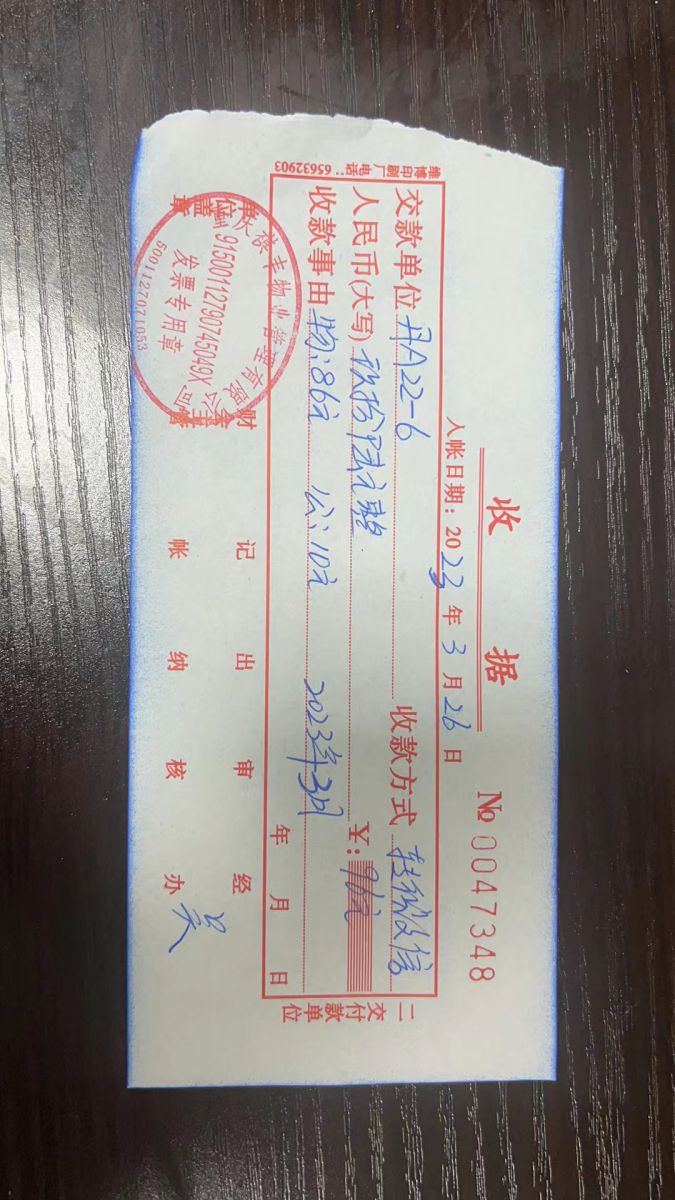 收 据 № 0047348
入帐日期：2023年3月26日
交款单位 丹A22-6 收款方式
人民币(大写) 玖拾陆元整 ￥：96元
收款事由 物：86元 公：10元 2023年3月
年 月 日
单位盖章 财会主管 记帐 出纳 审核 经办 吴
二交付款单位
维博印刷厂 电话：65632903
重庆 丰物业管理有限公司
91500112790745049X
发票专用章
5001127071053